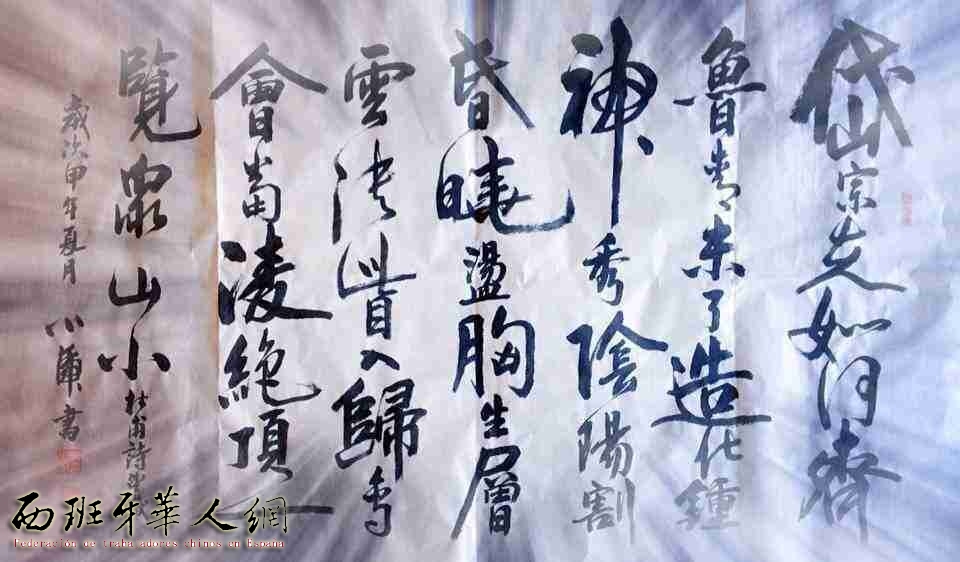 岱宗夫如何齊
魯青未了造化鍾
神秀陰陽割
昏曉盪胸生層
雲決眥入歸鳥
會當凌絕頂一
覽眾山小
杜甫詩望嶽
歲次甲午夏月
小 書
西班牙華人網
Federacion de trabajadores chinos en Espana